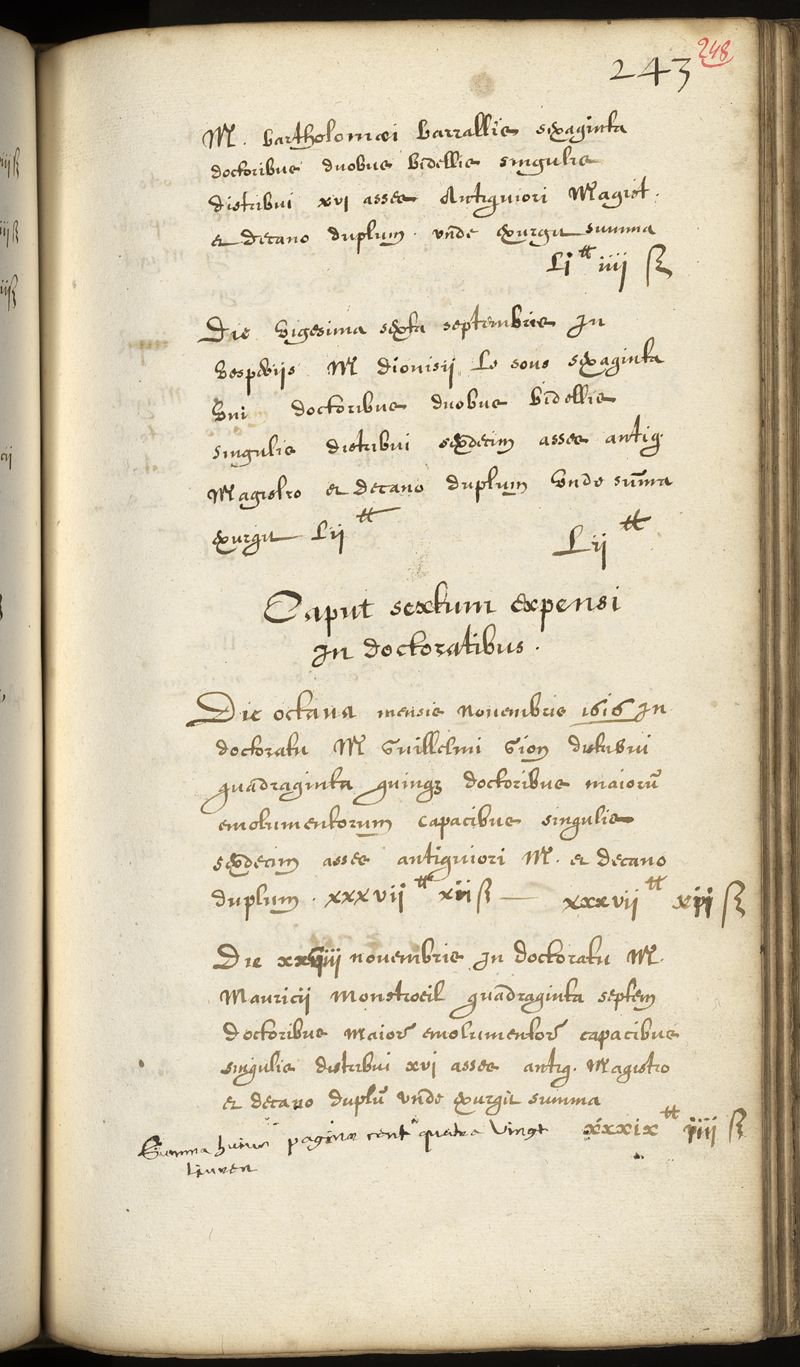 243 248
M. Bartholomæi Barrallis sexaginta
doctoribus duobus Bidellis singulis
distribui xvi asses Antiquiori Magist.
et decano duplum. vnde exurgit summa
Li tt iiii ß
Die Vigesima sexta septembris In
Vesperijs M dionisij Le sous sexaginta
Vni doctoribus duobus Bidellis
singulis distribui sexdecim asses antiq.
Magistro et decano duplum Vnde summa
exurgit Lii tt Lii tt
Caput sextum expensi
In doctoratibus.
Die octaua mensis Nouembris 1616 In
doctoratu M Guillelmi Gion distribui
quadraginta quinqz doctoribus maiorũ
emolumentorum capacibus singulis
sexdecim asses antiquiori M. et decano
duplum. xxxvii tt xii ß — xxxvii tt xii ß
Die nouembris In doctoratu M.
Mauricij Monstroeil quadraginta septem
doctoribus maior emolumentor capacibus
singulis distribui xvi asses antiq. Magistro
et decano duplũ vnde exurgit summa
xxxix tt iiii ß
Summa huius paginæ cent quatre Vingt
Liures